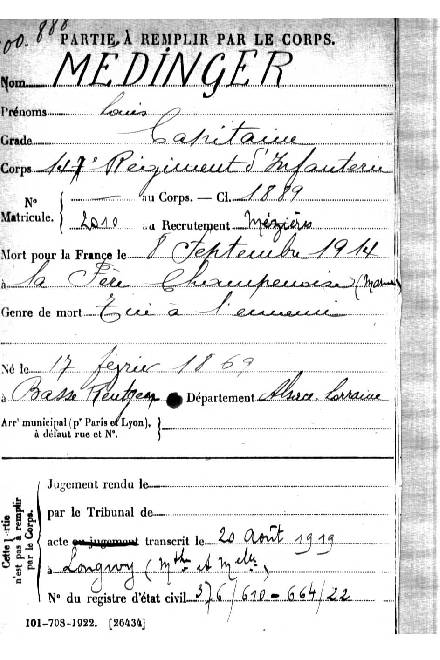 PARTIE À REMPLIR PAR LE CORPS.
Nom MÉDINGER
Prénoms Louis
Grade Capitaine
Corps 147e Régiment d'Infanterie
N° Matricule. { — au Corps. — Cl. 1889
2010 au Recrutement Mézières
Mort pour la France le 8 Septembre 1914
à la Fère Champenoise (Marne)
Genre de mort Tué à l'ennemi
Né le 17 février 1869
à Basse Rentgen Département Alsace-Lorraine
Arrt municipal (pr Paris et Lyon), à défaut rue et N°. }
Cette partie n'est pas à remplir par le Corps.
Jugement rendu le
par le Tribunal de
acte ou jugement transcrit le 20 août 1919
à Longwy (Mthe et Melle)
N° du registre d'état civil 376/610 - 664/22
101-708-1922. [26434]